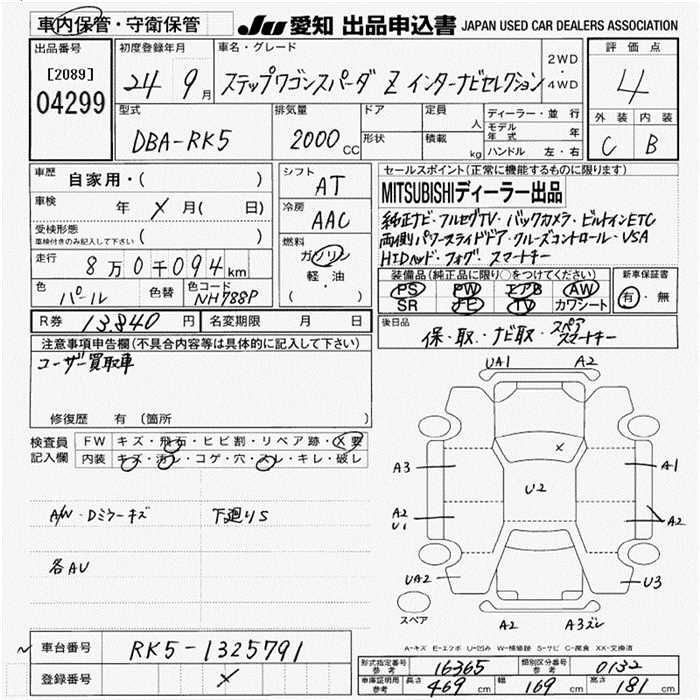 車内保管・守衛保管
JU 愛知 出品申込書 JAPAN USED CAR DEALERS ASSOCIATION
出品番号
[2089]
04299
初度登録年月
24 9月
車名・グレード
ステップワゴンスパーダ Z インターナビセレクション
2WD
・
4WD
評価点
4
外装 内装
C B
型式
DBA-RK5
排気量
2000 CC
ドア
形状
定員
人
積載
kg
ディーラー・並行
モデル年式 年
ハンドル 左・右
車歴
自家用・( )
車検
年 メ 月( 日)
受検形態
車検付きのみ記入して下さい ( )
走行
8万0千094km
色
パール
色替
色コード
NH788P
シフト
AT
冷房
AAC
燃料
ガソリン
軽・油
( )
セールスポイント(正常に機能するものに限ります)
MITSUBISHIディーラー出品
純正ナビ・フルセグTV・バックカメラ・ビルトインETC
両側パワースライドドア・クルーズコントロール・VSA
HIDヘッド・フォグ スマートキー
装備品(純正品に限り○をつけてください)
PS PW エアB AW
SR ナビ TV カワシート
新車保証書
有・無
R券 13840 円
名変期限 月 日
後日品
保・取・ナビ取・スペアスマートキー
注意事項申告欄(不具合内容等は具体的に記入して下さい)
ユーザー買取車
修復歴 有 (箇所 )
検査員
記入欄
FW キズ・飛石・ヒビ割・リペア跡・X要
内装 キズ・汚レ・コゲ・穴・スレ・キレ・破レ
A/W・Dミラーキズ 下廻りS
各AU
UA1 A2
A3 A1
U2
A2
U1
A2
UA2 U3
スペア
A2 A3ズレ
A-キズ E-エクボ U-凹み W-補修跡 S-サビ C-腐食 XX-交換済
車台番号 RK5-1325791
登録番号 メ
形式指定番号
参考
16365
類別区分番号
参考
0132
車庫証明用
参考
長さ 469 cm 幅 169 cm 高さ 181 cm